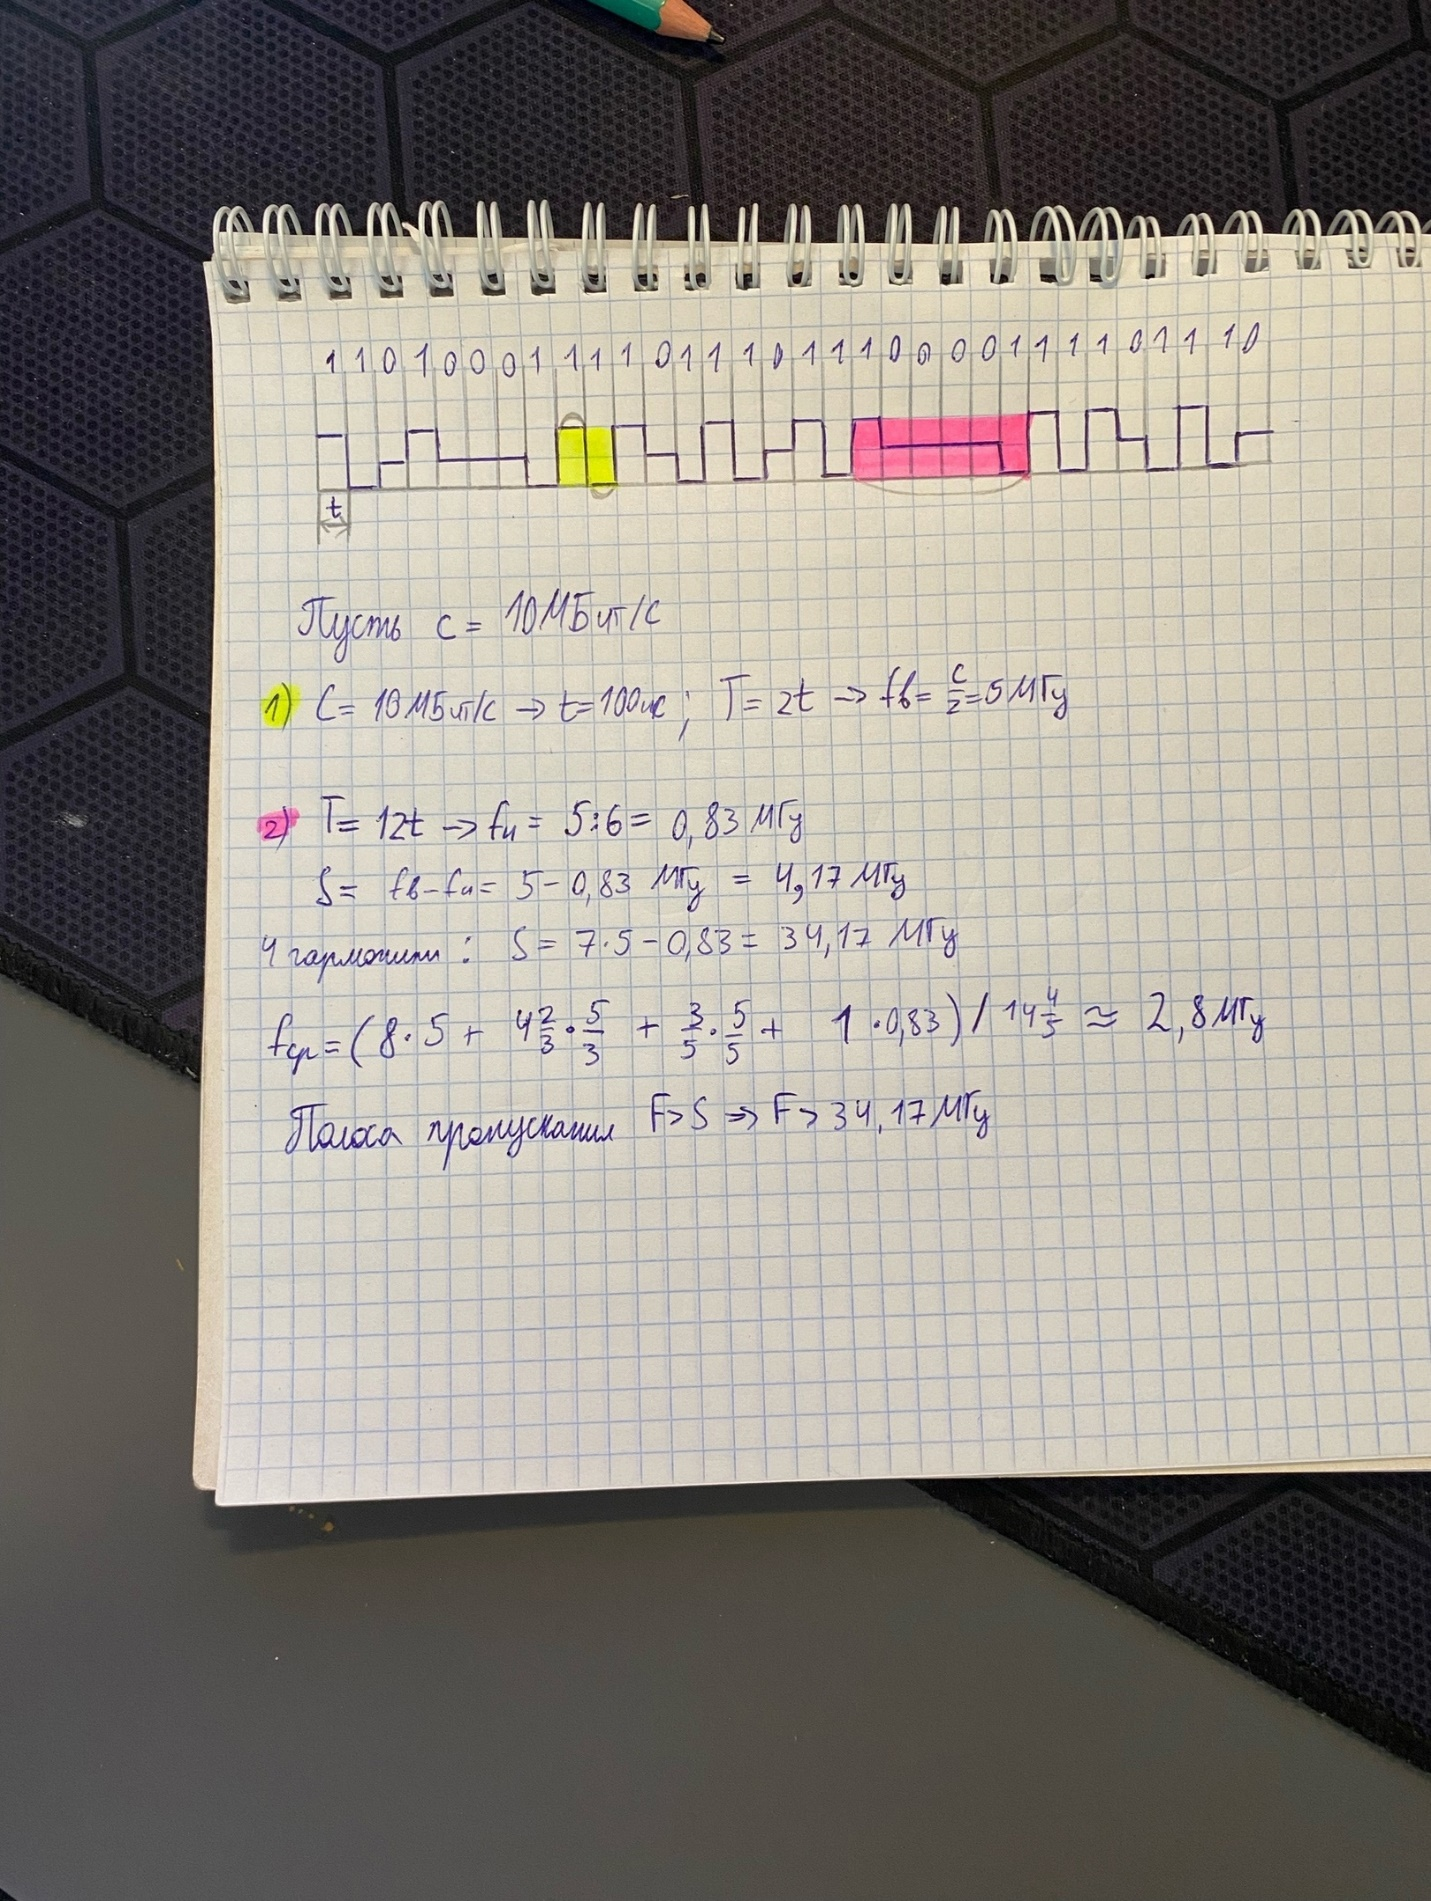 1 1 0 1 0 0 0 1 1 1 1 0 1 1 1 0 1 1 1 0 0 0 0 1 1 1 1 0 1 1 1 0
t
Пусть c = 10МБит/с
1) C = 10 МБит/с → t=100нс ; T = 2t → fв = C/2 = 5 МГц
2) T = 12t → fн = 5:6 = 0,83 МГц
S = fв - fн = 5 - 0,83 МГц = 4,17 МГц
4 гармоники : S = 7·5 - 0,83 = 34,17 МГц
fср = (8·5 + 4 2/3 · 5/3 + 3/5 · 5/5 + 1·0,83) / 14 4/5 ≈ 2,8 МГц
Полоса пропускания F > S ⇒ F > 34,17 МГц